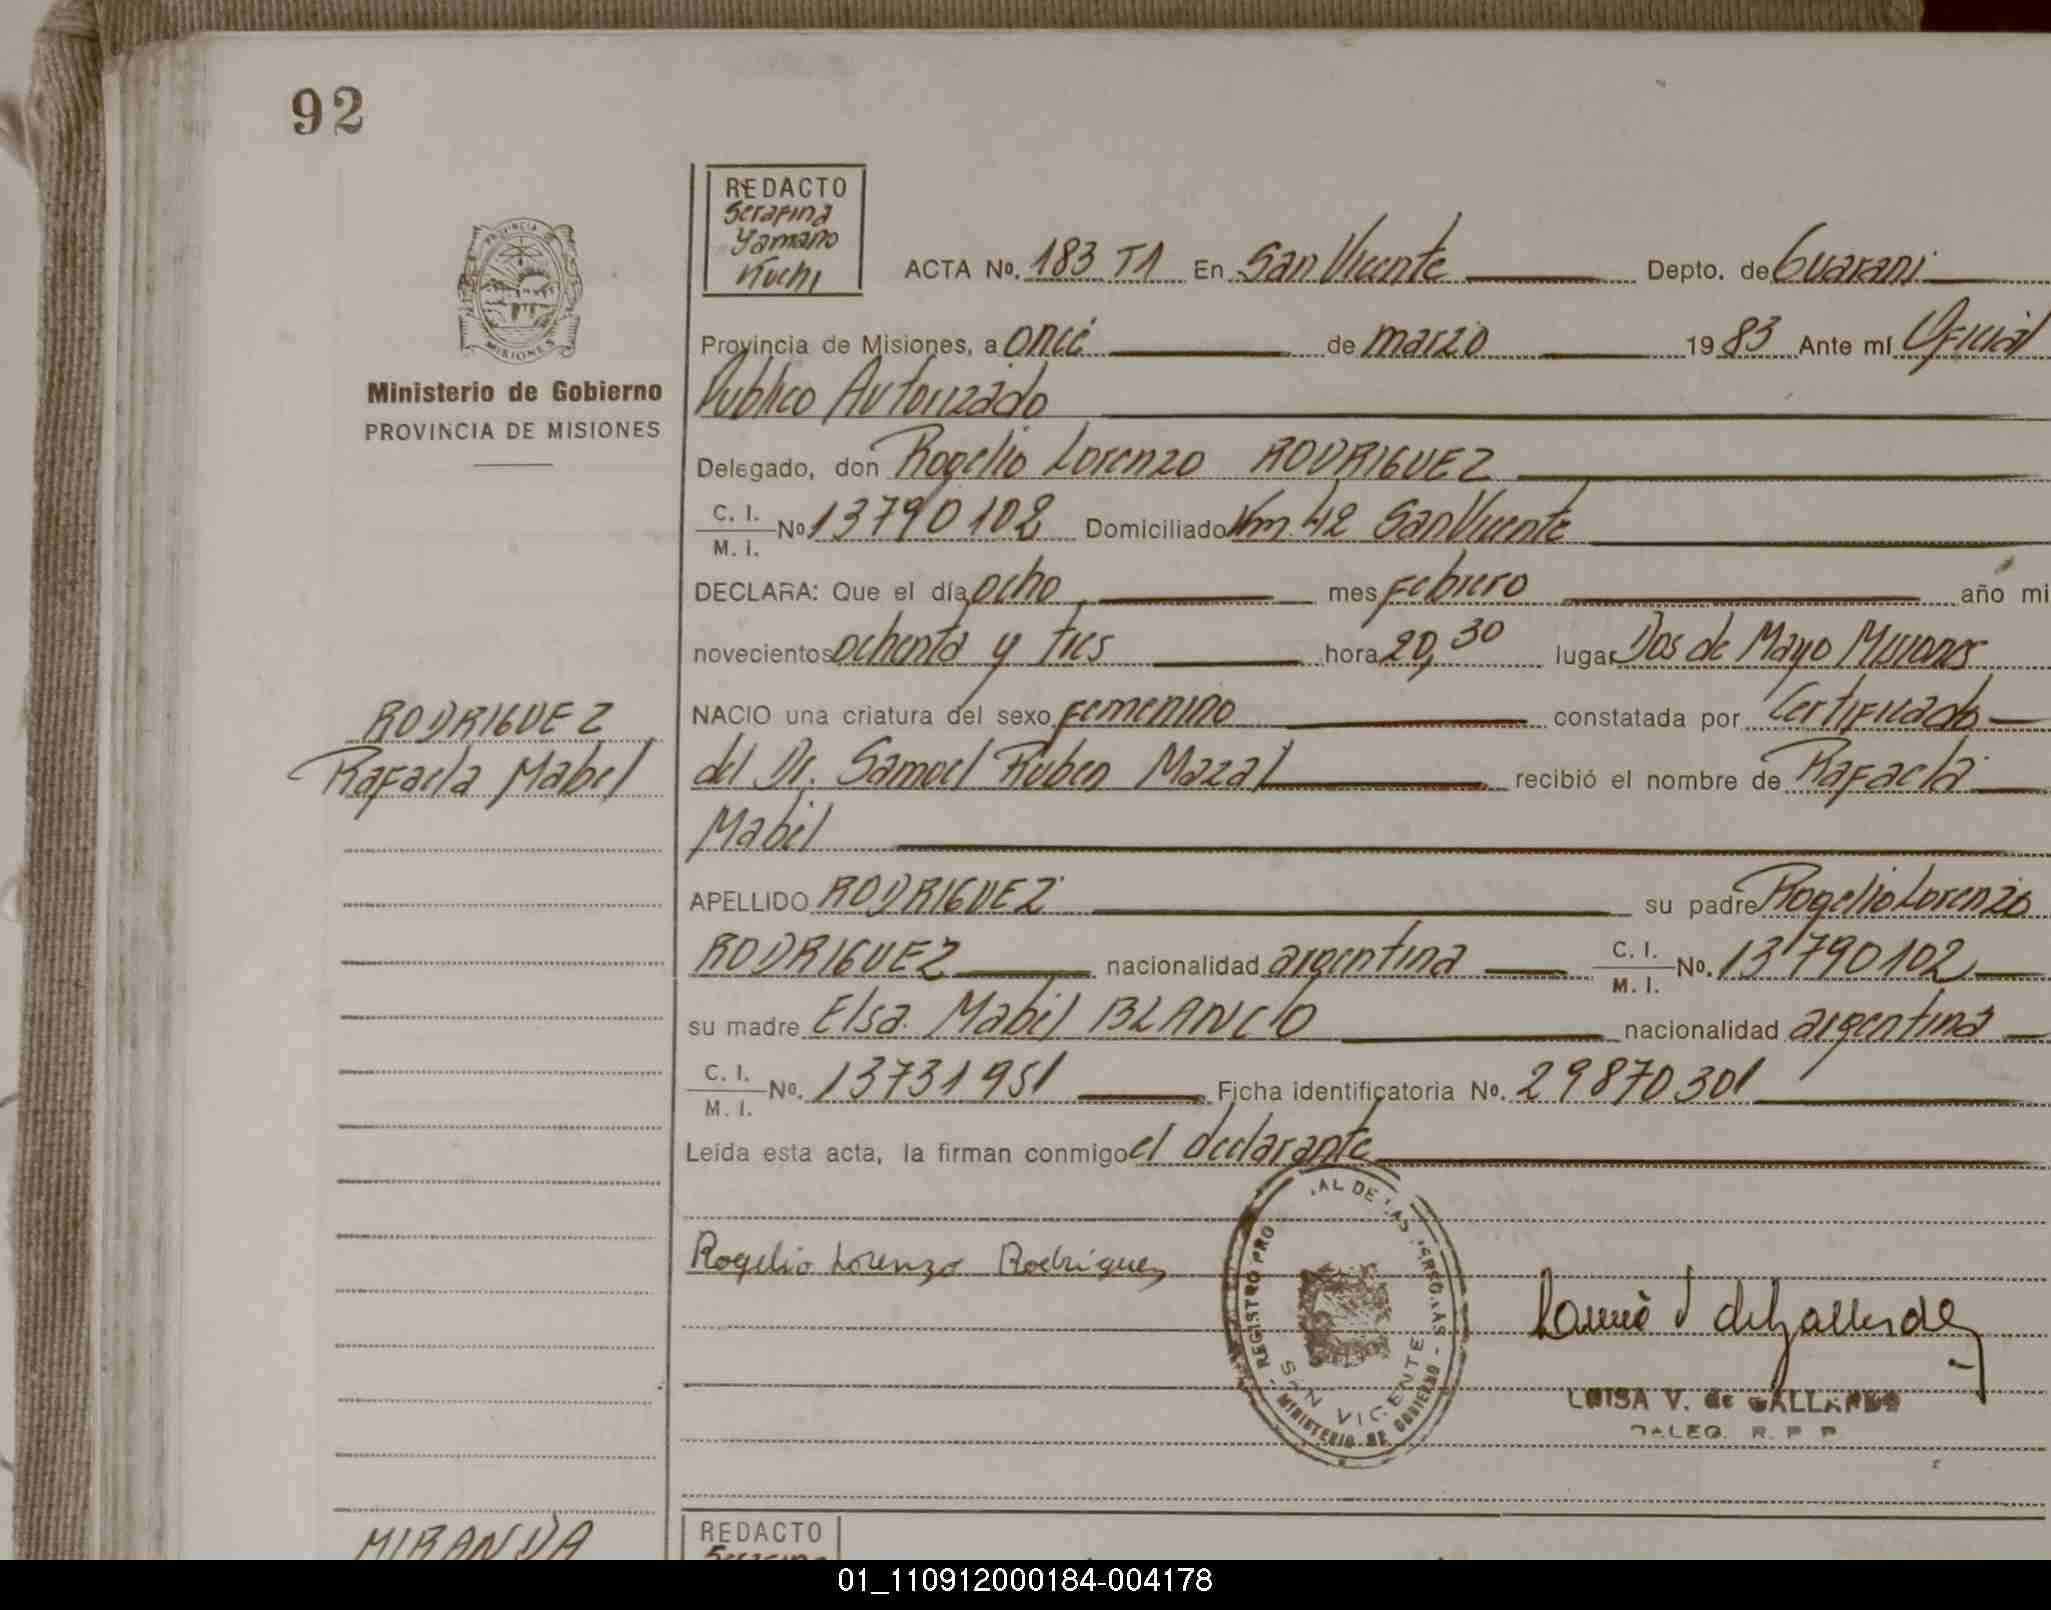 92
REDACTO
Serafina
Yamano
Kuchi
ACTA No. 183 T1 En San Vicente Depto. de Guarani
PROVINCIA
MISIONES
Provincia de Misiones, a once de marzo 1983 Ante mí Oficial
Ministerio de Gobierno
Publico Autorizado
PROVINCIA DE MISIONES
Delegado, don Rogelio Lorenzo RODRIGUEZ
C. I.
M. I. No 13790102 Domiciliado Km. 42 San Vicente
DECLARA: Que el día ocho mes febrero año mi
novecientos ochenta y tres hora 20,30 lugar Dos de Mayo Misiones
RODRIGUEZ
NACIO una criatura del sexo femenino constatada por Certificado
Rafaela Mabel
del Dr. Samuel Ruben Mazal recibió el nombre de Rafaela
Mabel
APELLIDO RODRIGUEZ su padre Rogelio Lorenzo
RODRIGUEZ nacionalidad argentina C. I.
M. I. No. 13790102
su madre Elsa Mabel BLANCO nacionalidad argentina
C. I.
M. I. No. 13731951 Ficha identificatoria No. 29870301
Leída esta acta, la firman conmigo el declarante
Rogelio Lorenzo Rodriguez
REGISTRO PRO AL DE LAS PERSONAS
SAN VICENTE
MINISTERIO DE GOBIERNO
LUISA V. de GALLARDO
DALEG. R. P. P.
MIRANDA
REDACTO
Serafina
01_110912000184-004178